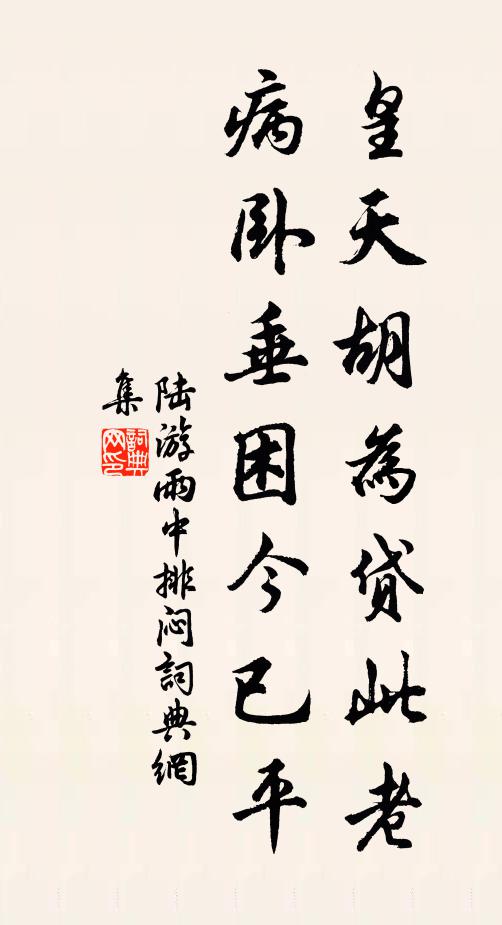 皇天胡為貸此老
病卧垂困今已平
陆游雨中排闷詞典網
集
詞典
网印